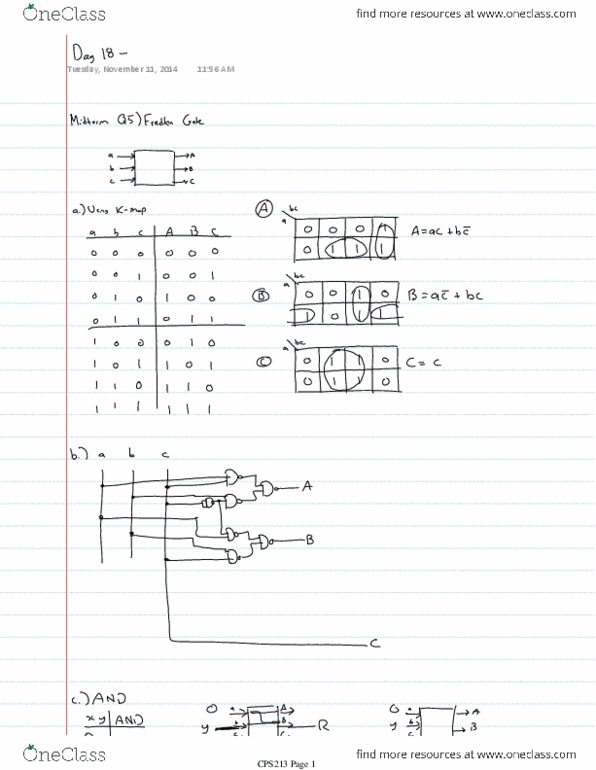 OneClass find more resources at www.oneclass.com
Day 18 -
Tuesday, November 11, 2014 11:56 AM
Midterm Q5) Fredkin Gate
a A
b B
c C
a.) Using K-map
a b c A B C
0 0 0 0 0 0
0 0 1 0 0 1
0 1 0 1 0 0
0 1 1 0 1 1
1 0 0 0 1 0
1 0 1 1 0 1
1 1 0 1 1 0
1 1 1 1 1 1
A
a bc
0 0 0 1
0 1 1 1
A = ac + bc̄
B
a bc
0 0 1 0
1 0 1 1
B = ac̄ + bc
C
a bc
0 1 1 0
0 1 1 0
C = c
b.) a b c
A
B
C
c.) AND
x y AND
0
0 a A
y b B R
c C
0 a A
y b B
c
OneClass find more resources at www.oneclass.com
CPS213 Page 1